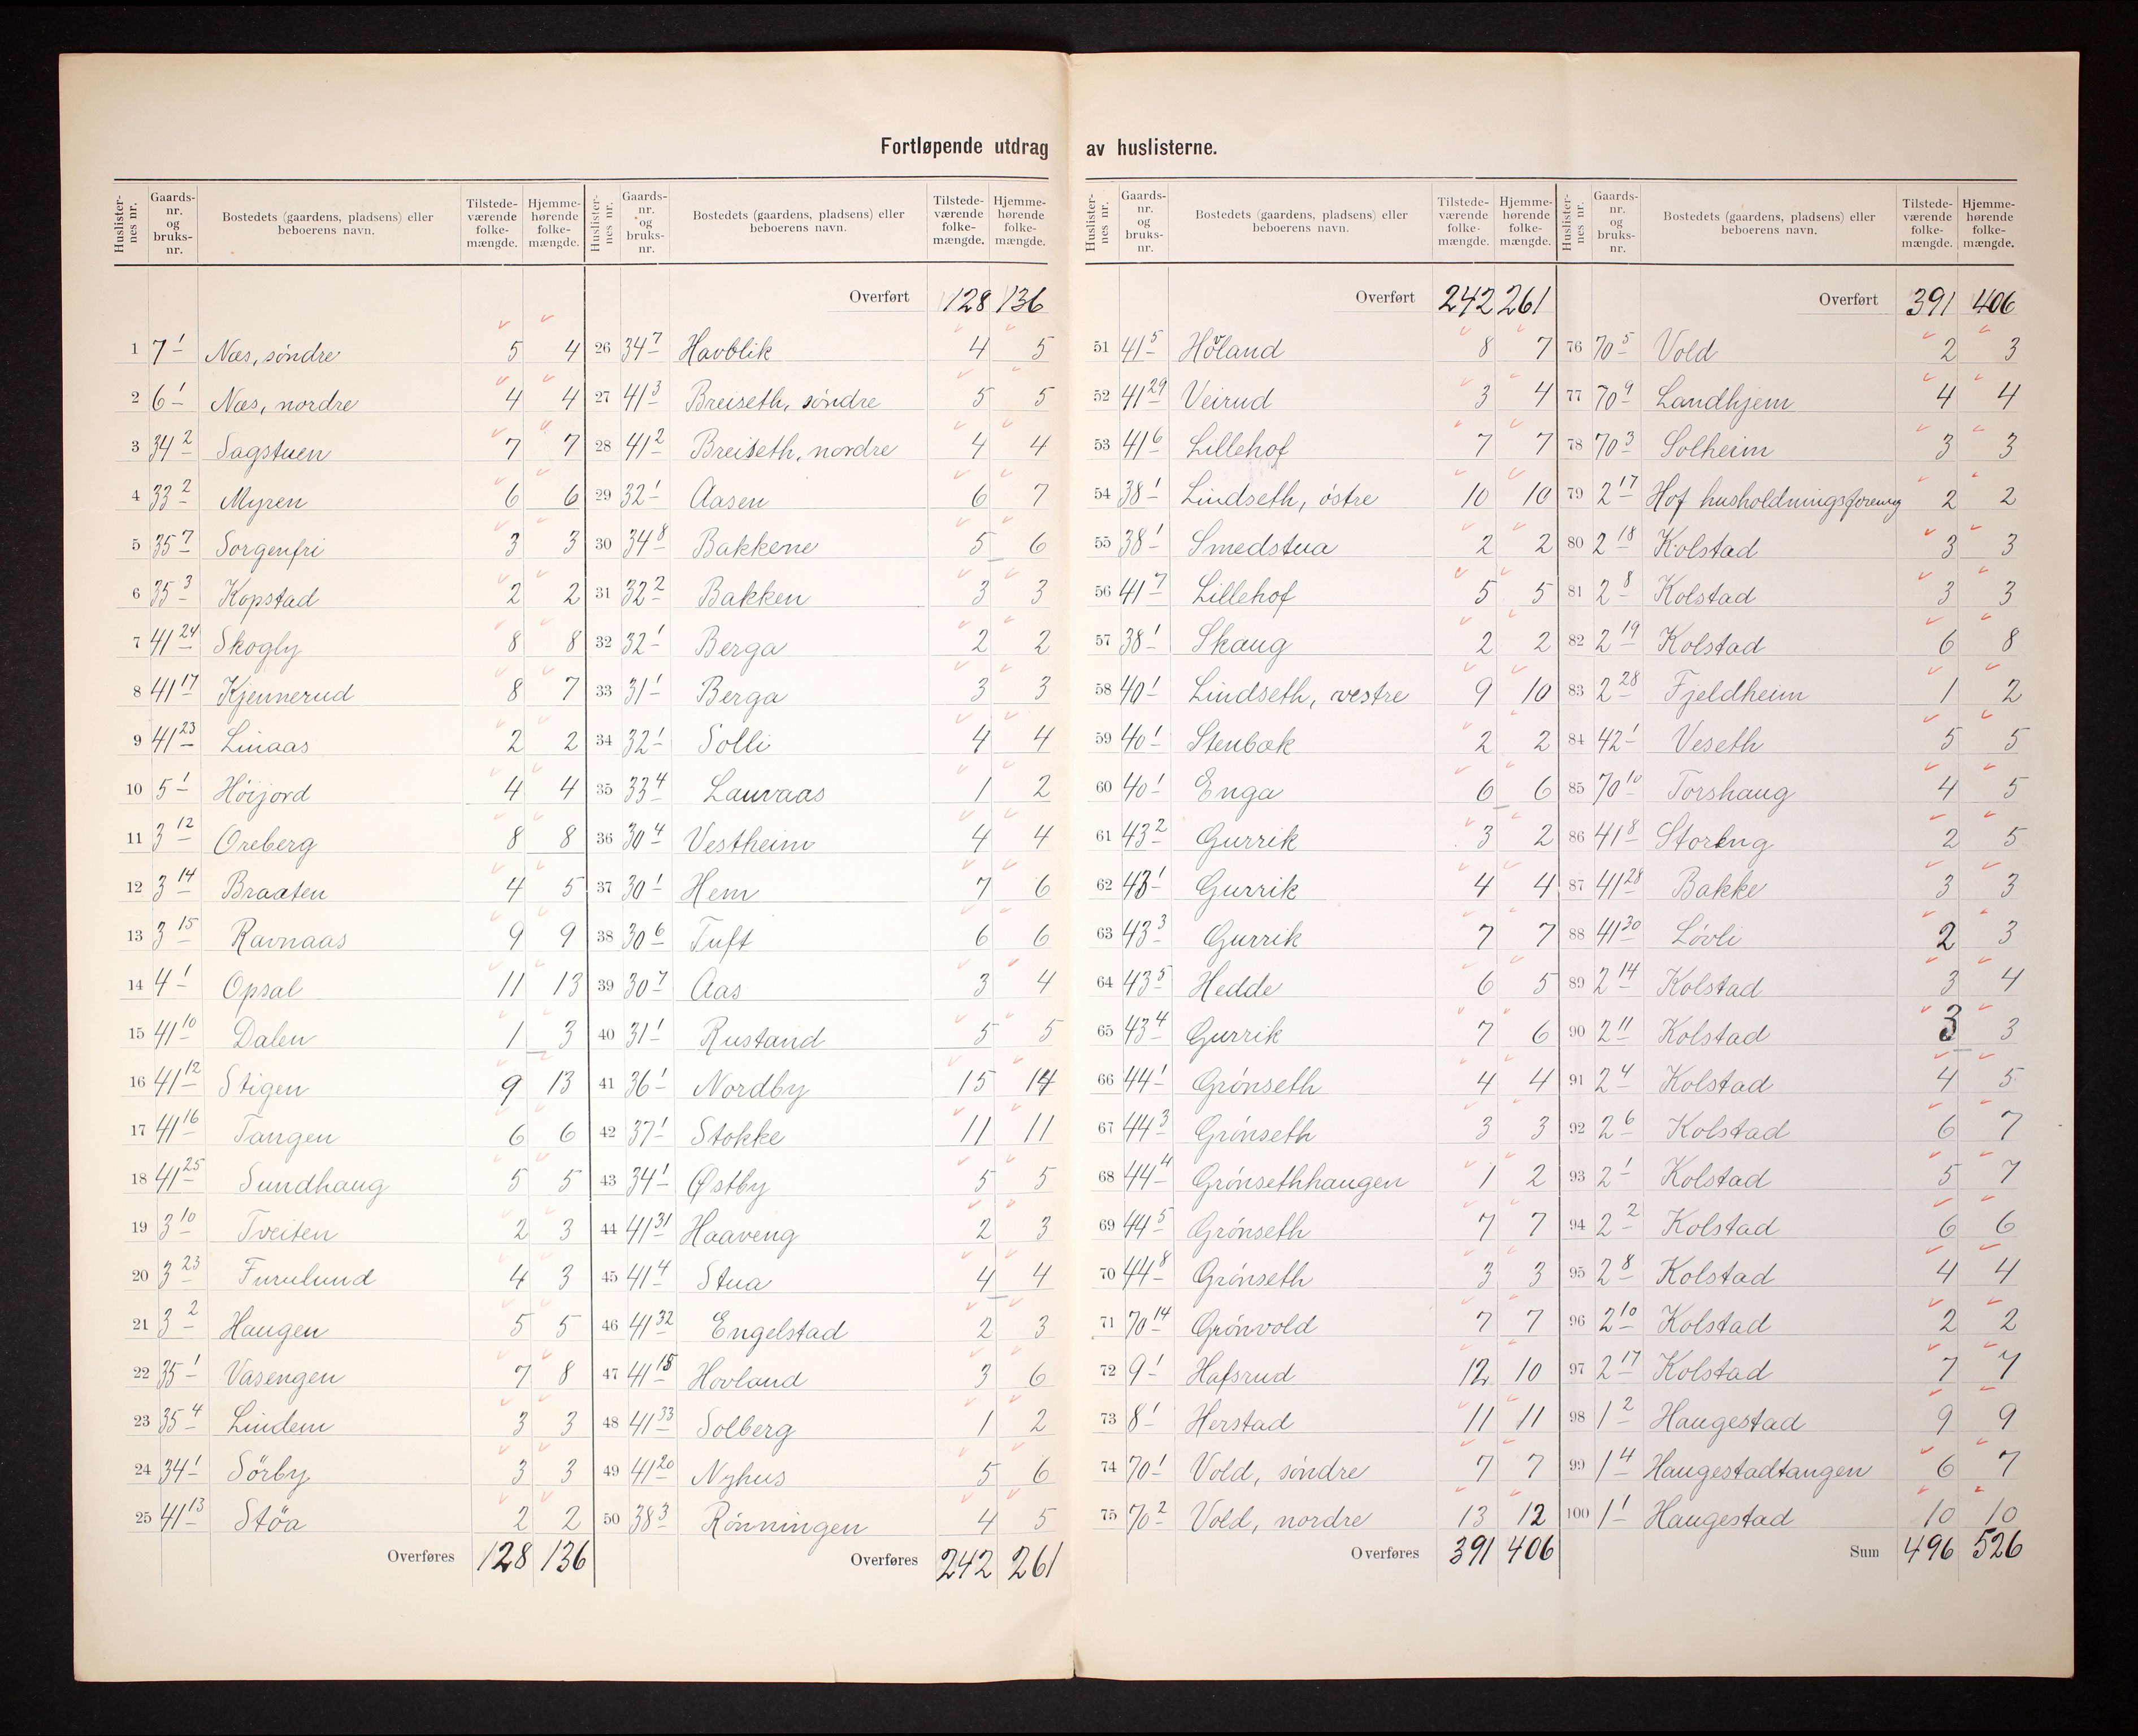 Fortløpende utdrag av huslisterne.
Huslisternes nr. Gaards-nr. og bruks-nr. Bostedets (gaardens, pladsens) eller beboerens navn. Tilstedeværende folkemængde. Hjemmehørende folkemængde.
1 7 1 Næs, söndre 5 4
2 6 1 Næs, nordre 4 4
3 34 2 Sagstuen 7 7
4 33 2 Myren 6 6
5 35 7 Sorgenfri 3 3
6 35 3 Kopstad 2 2
7 41 24 Skogly 8 8
8 41 17 Kjennerud 8 7
9 41 23 Linaas 2 2
10 5 1 Höijord 4 4
11 3 12 Oreberg 8 8
12 3 14 Braaten 4 5
13 3 15 Ravnaas 9 9
14 4 1 Opsal 11 13
15 41 10 Dalen 1 3
16 41 12 Stigen 9 13
17 41 16 Tangen 6 6
18 41 25 Sundhaug 5 5
19 3 10 Tveiten 2 3
20 3 23 Furulund 4 3
21 3 2 Haugen 5 5
22 35 1 Vasengen 7 8
23 35 4 Lindem 3 3
24 34 1 Sörby 3 3
25 41 13 Stöa 2 2
Overføres 128 136
Huslisternes nr. Gaards-nr. og bruks-nr. Bostedets (gaardens, pladsens) eller beboerens navn. Tilstedeværende folkemængde. Hjemmehørende folkemængde.
Overført 128 136
26 34 7 Havblik 4 5
27 41 3 Breiseth, söndre 5 5
28 41 2 Breiseth, nordre 4 4
29 32 1 Aasen 6 7
30 34 8 Bakkene 5 6
31 32 2 Bakken 3 3
32 32 1 Berga 2 2
33 31 1 Berga 3 3
34 32 1 Solli 4 4
35 33 4 Lauvaas 1 2
36 30 4 Vestheim 4 4
37 30 1 Hem 7 6
38 30 6 Tuft 6 6
39 30 7 Aas 3 4
40 31 1 Rustand 5 5
41 36 1 Nordby 15 14
42 37 1 Stokke 11 11
43 34 1 Østby 5 5
44 41 31 Haaveng 2 3
45 41 4 Stua 4 4
46 41 32 Engelstad 2 3
47 41 15 Hovland 3 6
48 41 33 Solberg 1 2
49 41 20 Nyhus 5 6
50 38 3 Rönningen 4 5
Overføres 242 261
Huslisternes nr. Gaards-nr. og bruks-nr. Bostedets (gaardens, pladsens) eller beboerens navn. Tilstedeværende folkemængde. Hjemmehørende folkemængde.
Overført 242 261
51 41 5 Höland 8 7
52 41 29 Veirud 3 4
53 41 6 Lillehof 7 7
54 38 1 Lindseth, östre 10 10
55 38 1 Smedstua 2 2
56 41 7 Lillehof 5 5
57 38 1 Skaug 2 2
58 40 1 Lindseth, vestre 9 10
59 40 1 Stenbæk 2 2
60 40 1 Enga 6 6
61 43 2 Gurrik 3 2
62 43 1 Gurrik 4 4
63 43 3 Gurrik 7 7
64 43 5 Hedde 6 5
65 43 4 Gurrik 7 6
66 44 1 Grönseth 4 4
67 44 3 Grönseth 3 3
68 44 4 Grönsethhaugen 1 2
69 44 5 Grönseth 7 7
70 44 8 Grönseth 3 3
71 70 14 Grönvold 7 7
72 9 1 Hafsrud 12 10
73 8 1 Herstad 11 11
74 70 1 Vold, söndre 7 7
75 70 2 Vold, nordre 13 12
Overføres 391 406
Huslisternes nr. Gaards-nr. og bruks-nr. Bostedets (gaardens, pladsens) eller beboerens navn. Tilstedeværende folkemængde. Hjemmehørende folkemængde.
Overført 391 406
76 70 5 Vold 2 3
77 70 9 Landhjem 4 4
78 70 3 Solheim 3 3
79 2 17 Hof husholdningsforening 2 2
80 2 18 Kolstad 3 3
81 2 8 Kolstad 3 3
82 2 19 Kolstad 6 8
83 2 28 Fjeldheim 1 2
84 42 1 Veseth 5 5
85 70 10 Torshaug 4 5
86 41 8 Storeng 2 5
87 41 28 Bakke 3 3
88 41 30 Lövli 2 3
89 2 14 Kolstad 3 4
90 2 11 Kolstad 3 3
91 2 4 Kolstad 4 5
92 2 6 Kolstad 6 7
93 2 1 Kolstad 5 7
94 2 2 Kolstad 6 6
95 2 8 Kolstad 4 4
96 2 10 Kolstad 2 2
97 2 17 Kolstad 7 7
98 1 2 Haugestad 9 9
99 1 4 Haugestadtangen 6 7
100 1 1 Haugestad 10 10
Sum 496 526